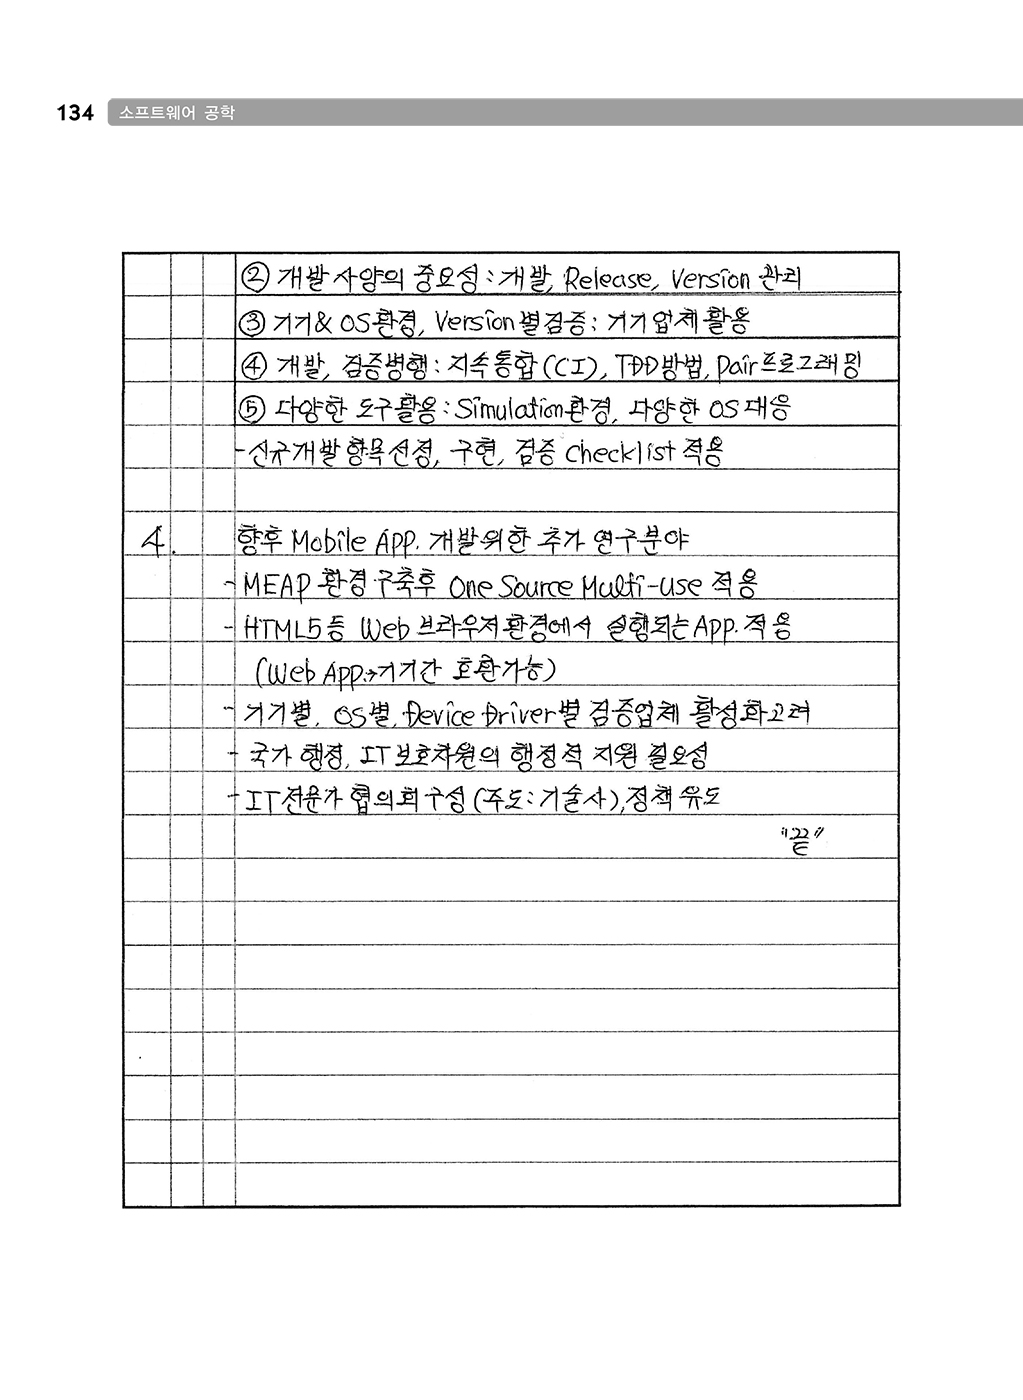 134 소프트웨어 공학
② 개발사양의 중요성 : 개발, Release, Version 관리
③ 기기 & OS환경, Version별 검증 : 기기업체 활용
④ 개발, 검증병행 : 지속통합(CI), TDD방법, Pair프로그래밍
⑤ 다양한 도구활용 : Simulation환경, 다양한 OS대응
- 신규개발 항목선정, 구현, 검증 checklist 적용
4. 향후 Mobile APP. 개발위한 추가 연구분야
- MEAP 환경 구축후 One Source Multi-use 적용
- HTML5등 Web 브라우저환경에서 실행되는 App. 적용
(Web App.→기기간 호환가능)
- 기기별, OS별, Device Driver별 검증업체 활성화고려
- 국가 행정, IT보호차원의 행정적 지원 필요성
- IT전문가 협의회구성(주도:기술사), 정책 유도
"끝"